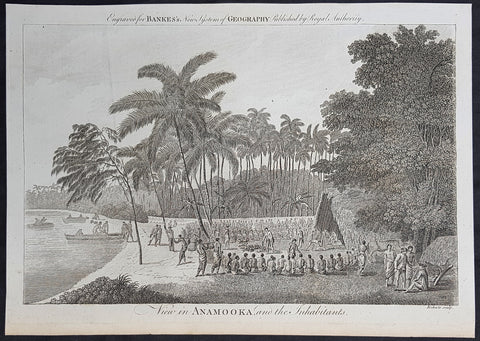 Engraved for BANKES's New System of GEOGRAPHY Published by Royal Authority.
View in ANAMOOKA, and the Inhabitants.